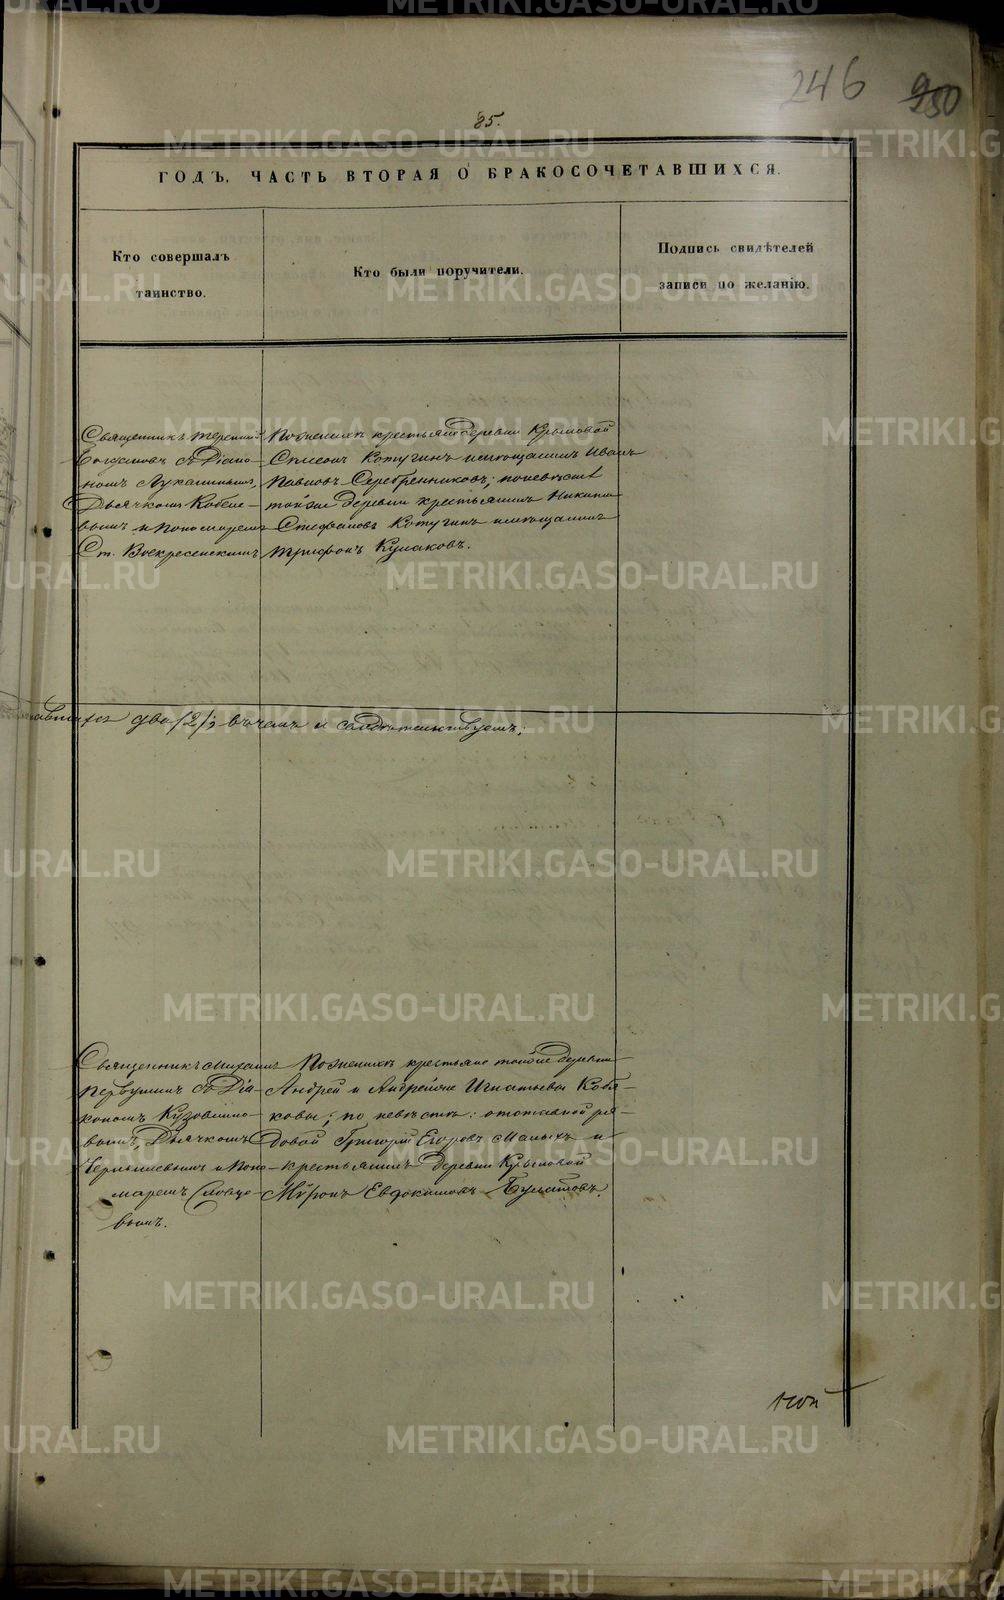 246 950
85.
ГОДЪ, ЧАСТЬ ВТОРАЯ О БРАКОСОЧЕТАВШИХСЯ.
Кто совершалъ
таинство.
Кто были поручители.
Подпись свидѣтелей
записи по желанію.
Священникъ
Богдановъ съ Діако-
номъ Лукашинымъ,
Дьячкомъ
вымъ и Пономаремъ
Ст. Воскресенскимъ
По женихѣ крестьян деревни Крысовой
Котугинъ и мѣщанинъ Иванъ
Павловъ Серебренниковъ; по невѣстѣ
той же деревни крестьянинъ Никита
Стефановъ Котугинъ и мѣщанинъ
Трифонъ Кулаковъ.
два /2/; въ чемъ и свидѣтельствуемъ;
Священникъ Михаилъ
Первушинъ съ Діа-
кономъ Кузовнико-
вымъ, Дьячкомъ
Чернышевымъ и Поно-
маремъ Словцо-
вымъ.
По женихѣ крестьяне той же деревни
Андрей и Андрей же Игнатьевы Кобя-
ковы; по невѣстѣ: отставной ря-
довой Григорій Егоровъ Малыхъ и
крестьянинъ деревни Крысовой
Мѵронъ Евдокимовъ Булатовъ.
METRIKI.GASO-URAL.RU